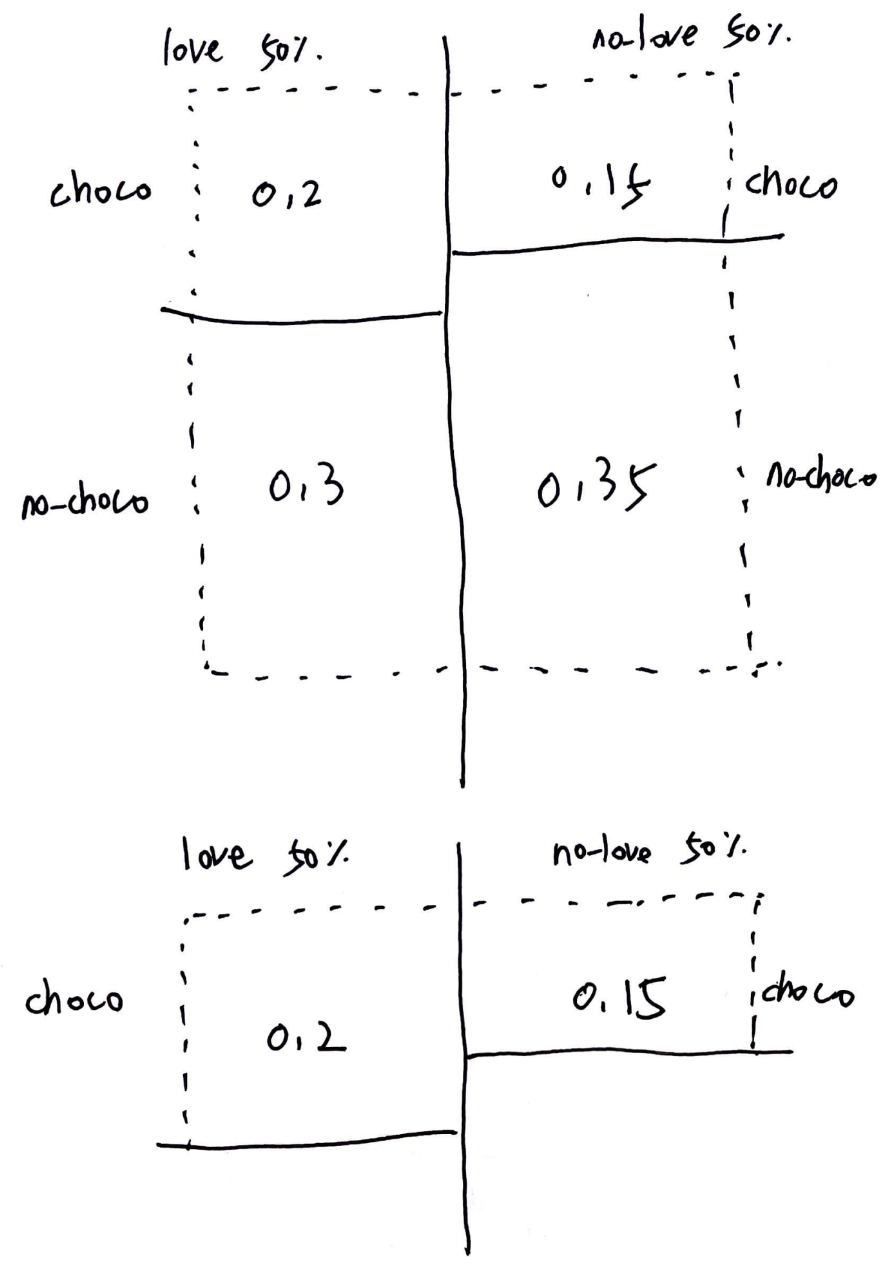 love 50%. no-love 50%.
choco 0,2 0,15 choco
no-choco 0,3 0,35 no-choco
love 50%. no-love 50%.
choco 0,2 0.15 choco